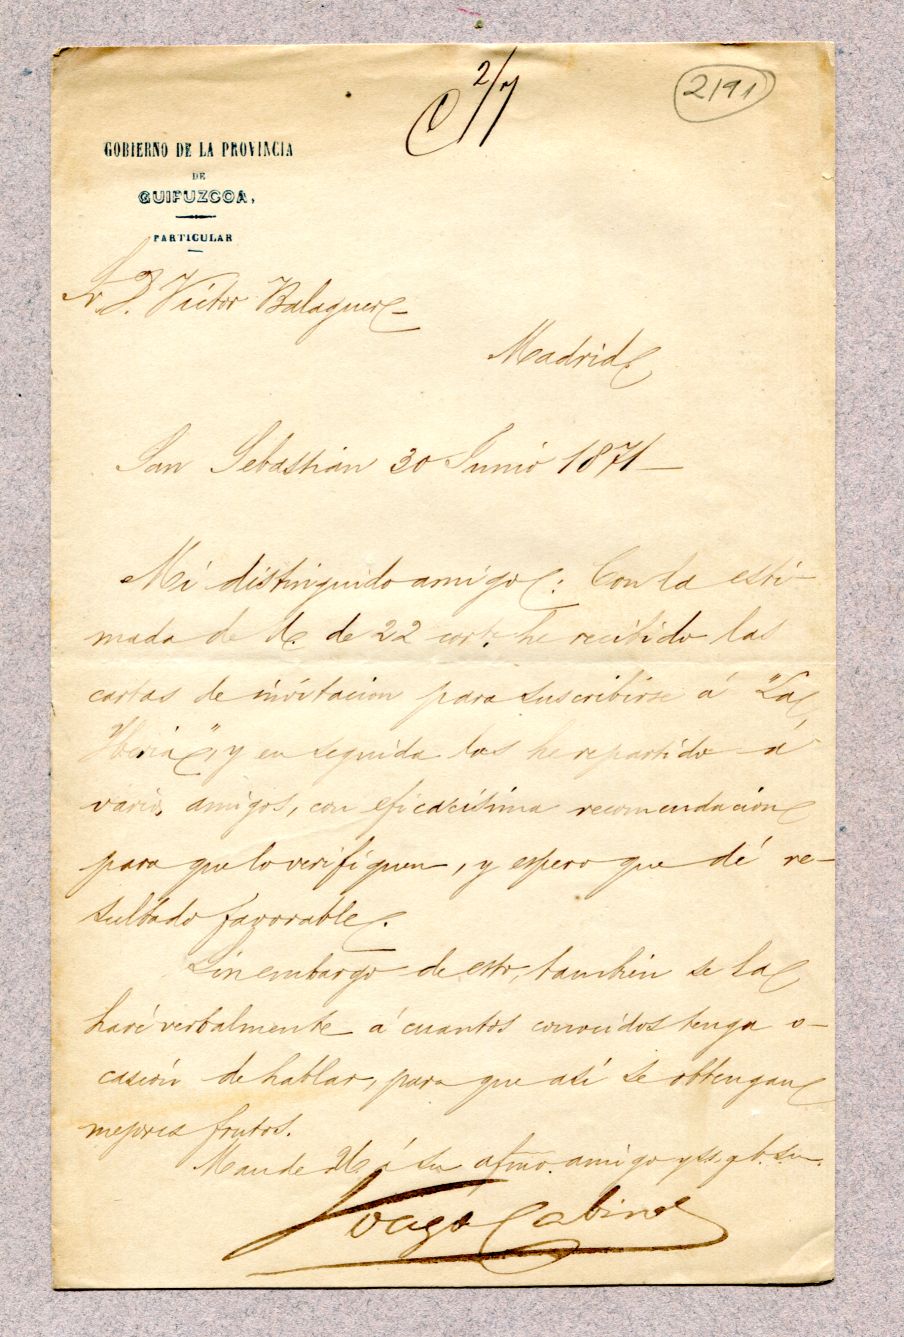 C 2/7
2191
GOBIERNO DE LA PROVINCIA
DE
GUIPUZCOA,
PARTICULAR
Sr D. Victor Balaguer
Madrid
San Sebastián 30 Junio 1871
Mi distinguido amigo: Con la esti-
mada de V. de 22 corte. he recibido las
cartas de invitacion para suscribirse á "La
Iberia", y en seguida las he repartido á
varios amigos, con eficacisima recomendacion
para que lo verifiquen, y espero que dé re-
sultado favorable.
Sin embargo de esto, tambien se la
haré verbalmente á cuantos conocidos tenga o-
casion de hablar, para que así se obtengan
mejores frutos.
Mande V. á su afmo. amigo y ss. q. b. s. m.
Cabine